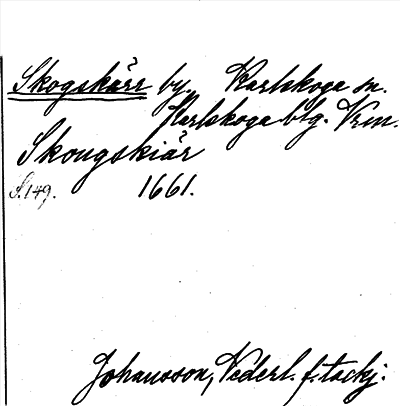 Skogskärr by. Karlskoga sn.
Karlskoga btg. Vrm.
Skougskiär
S. 149. 1661.
Johansson, Vederl. f. tackj.